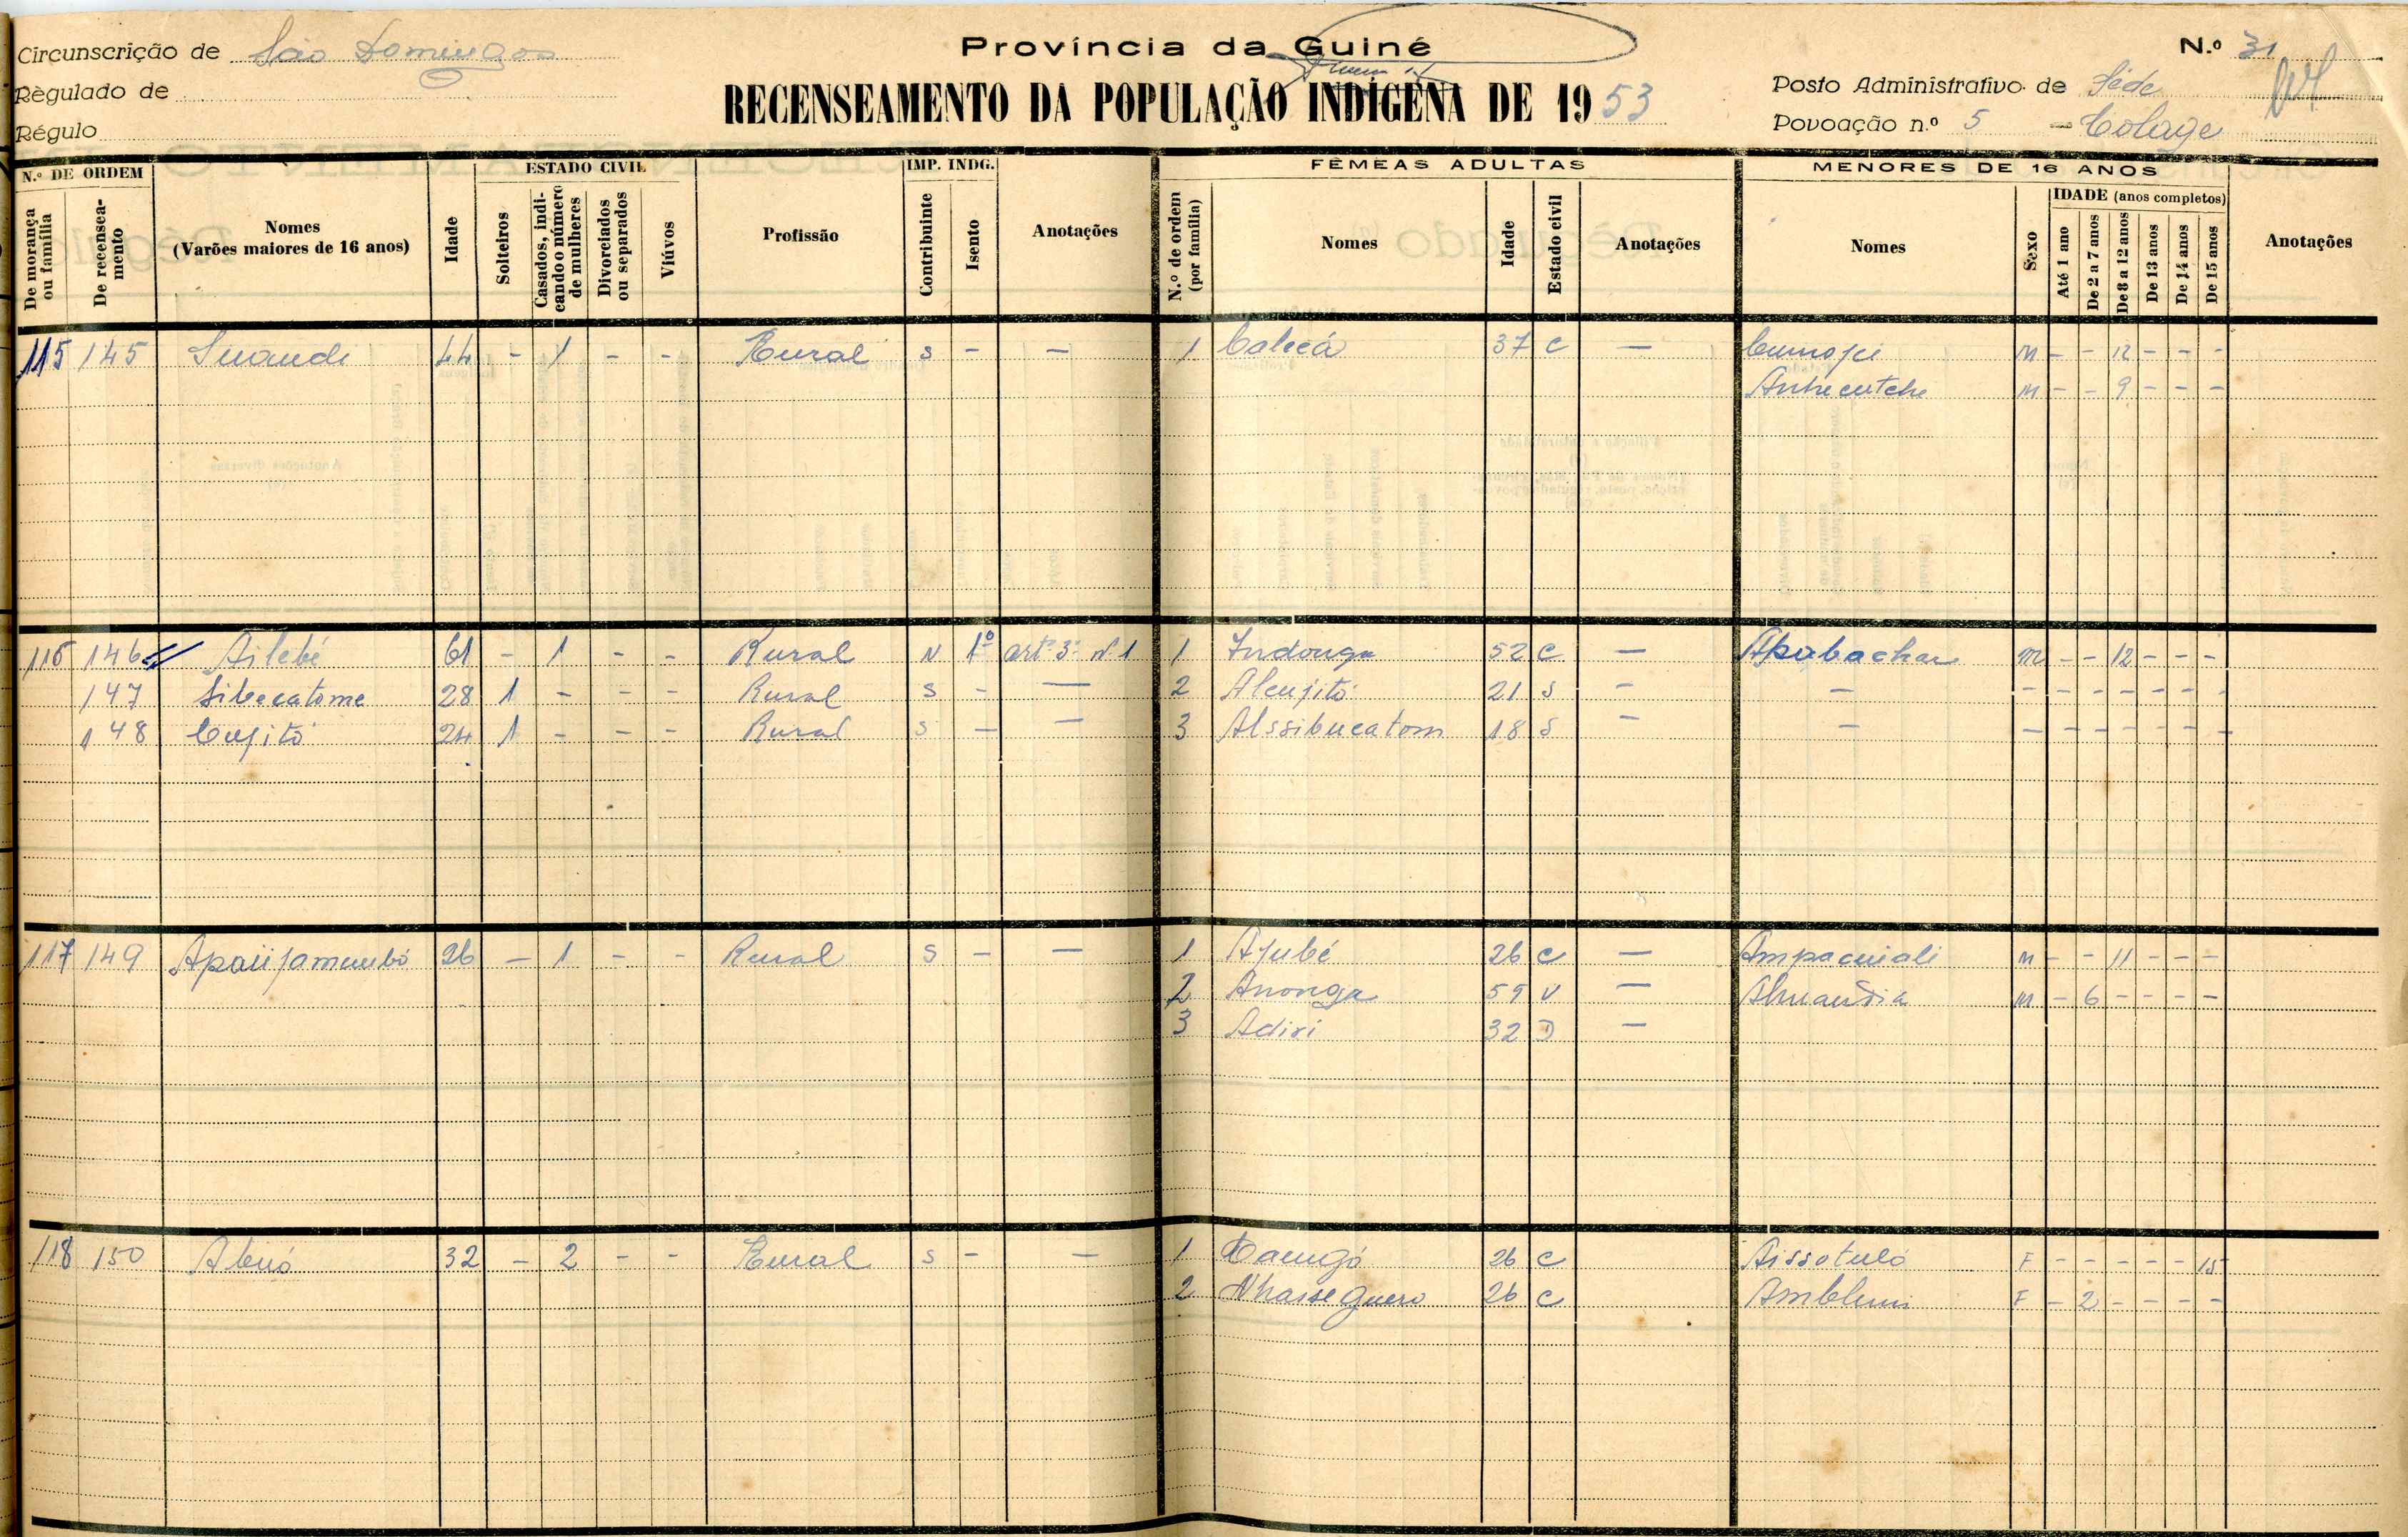 Circunscrição de São Domingos
Província da Guiné
N.º 31
Règulado de
RECENSEAMENTO DA POPULAÇÃO INDÍGENA DE 1953
Posto Administrativo de Séde
Régulo
Povoação n.º 5 - Colage
N.º DE ORDEM
ESTADO CIVIL
IMP. INDG.
FÊMEAS ADULTAS
MENORES DE 16 ANOS
De morança ou família
De recenseamento
Nomes
(Varões maiores de 16 anos)
Idade
Solteiros
Casados, indicando o número de mulheres
Divorciados ou separados
Viúvos
Profissão
Contribuinte
Isento
Anotações
N.º de ordem (por família)
Nomes
Idade
Estado civil
Anotações
Nomes
Sexo
IDADE (anos completos)
Até 1 ano
De 2 a 7 anos
De 8 a 12 anos
De 13 anos
De 14 anos
De 15 anos
Anotações
115 145 44 - 1 - - Rural s - - 1 Calecá 37 c - M - - 12 - - -
Anhecutche M - - 9 - - -
116 146 Ailebé 61 - 1 - - Rural N 1º artº 3º nº 1 1 Indonga 52 c - Apabachar M - - 12 - - -
147 Sibecatome 28 1 - - - Rural s - - 2 Aleujitó 21 s - - - - - - - - -
148 Cujitó 24 1 - - - Rural s - - 3 Alssibucatom 18 s - - - - - - - - -
117 149 26 - 1 - - Rural s - - 1 Ajubé 26 c - Ampacuiali M - - 11 - - -
2 Anonga 59 v - M - 6 - - - -
3 Adiri 32 D -
118 150 32 - 2 - - Rural s - - 1 26 c Aissotuló F - - - - - 15
2 26 c F - 2 - - - -